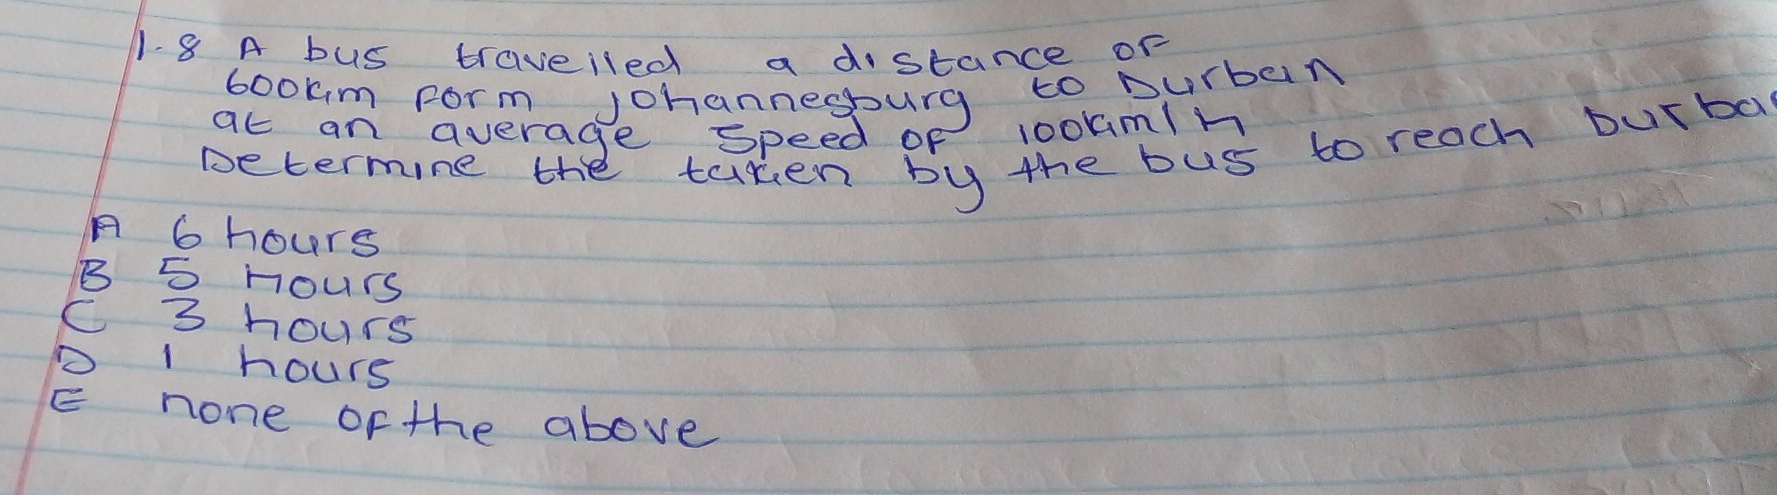 1.8 A bus travelled a distance of
600km form Johannesburg to Durban
at an average speed of 100km/h
Determine the taken by the bus to reach Durba
A 6 hours
B 5 Hours
C 3 hours
D 1 hours
E none of the above